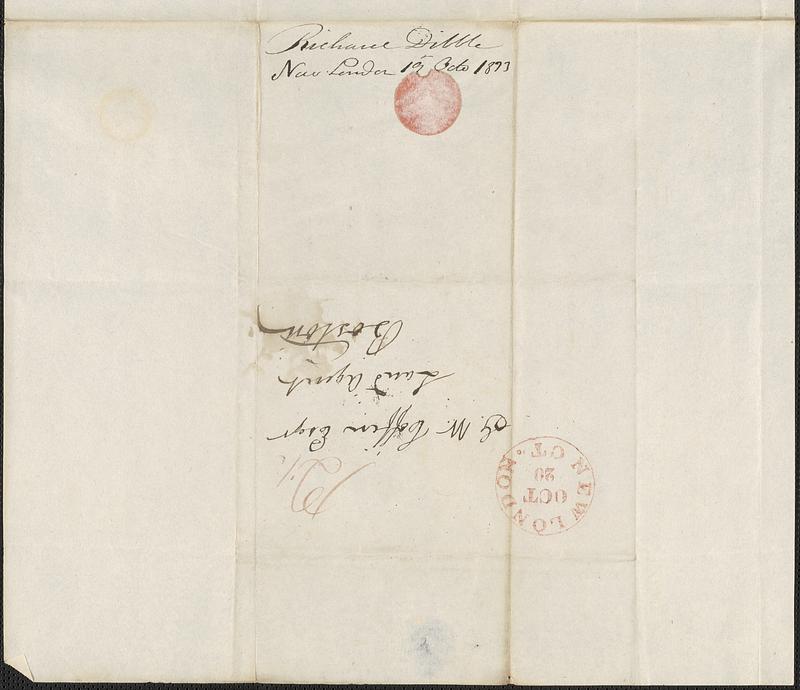 Richard Dibble
New London 19 Octo 1833
G. W. Coffin Esqr
Land Agent
Boston
NEW LONDON. CT.
OCT
20